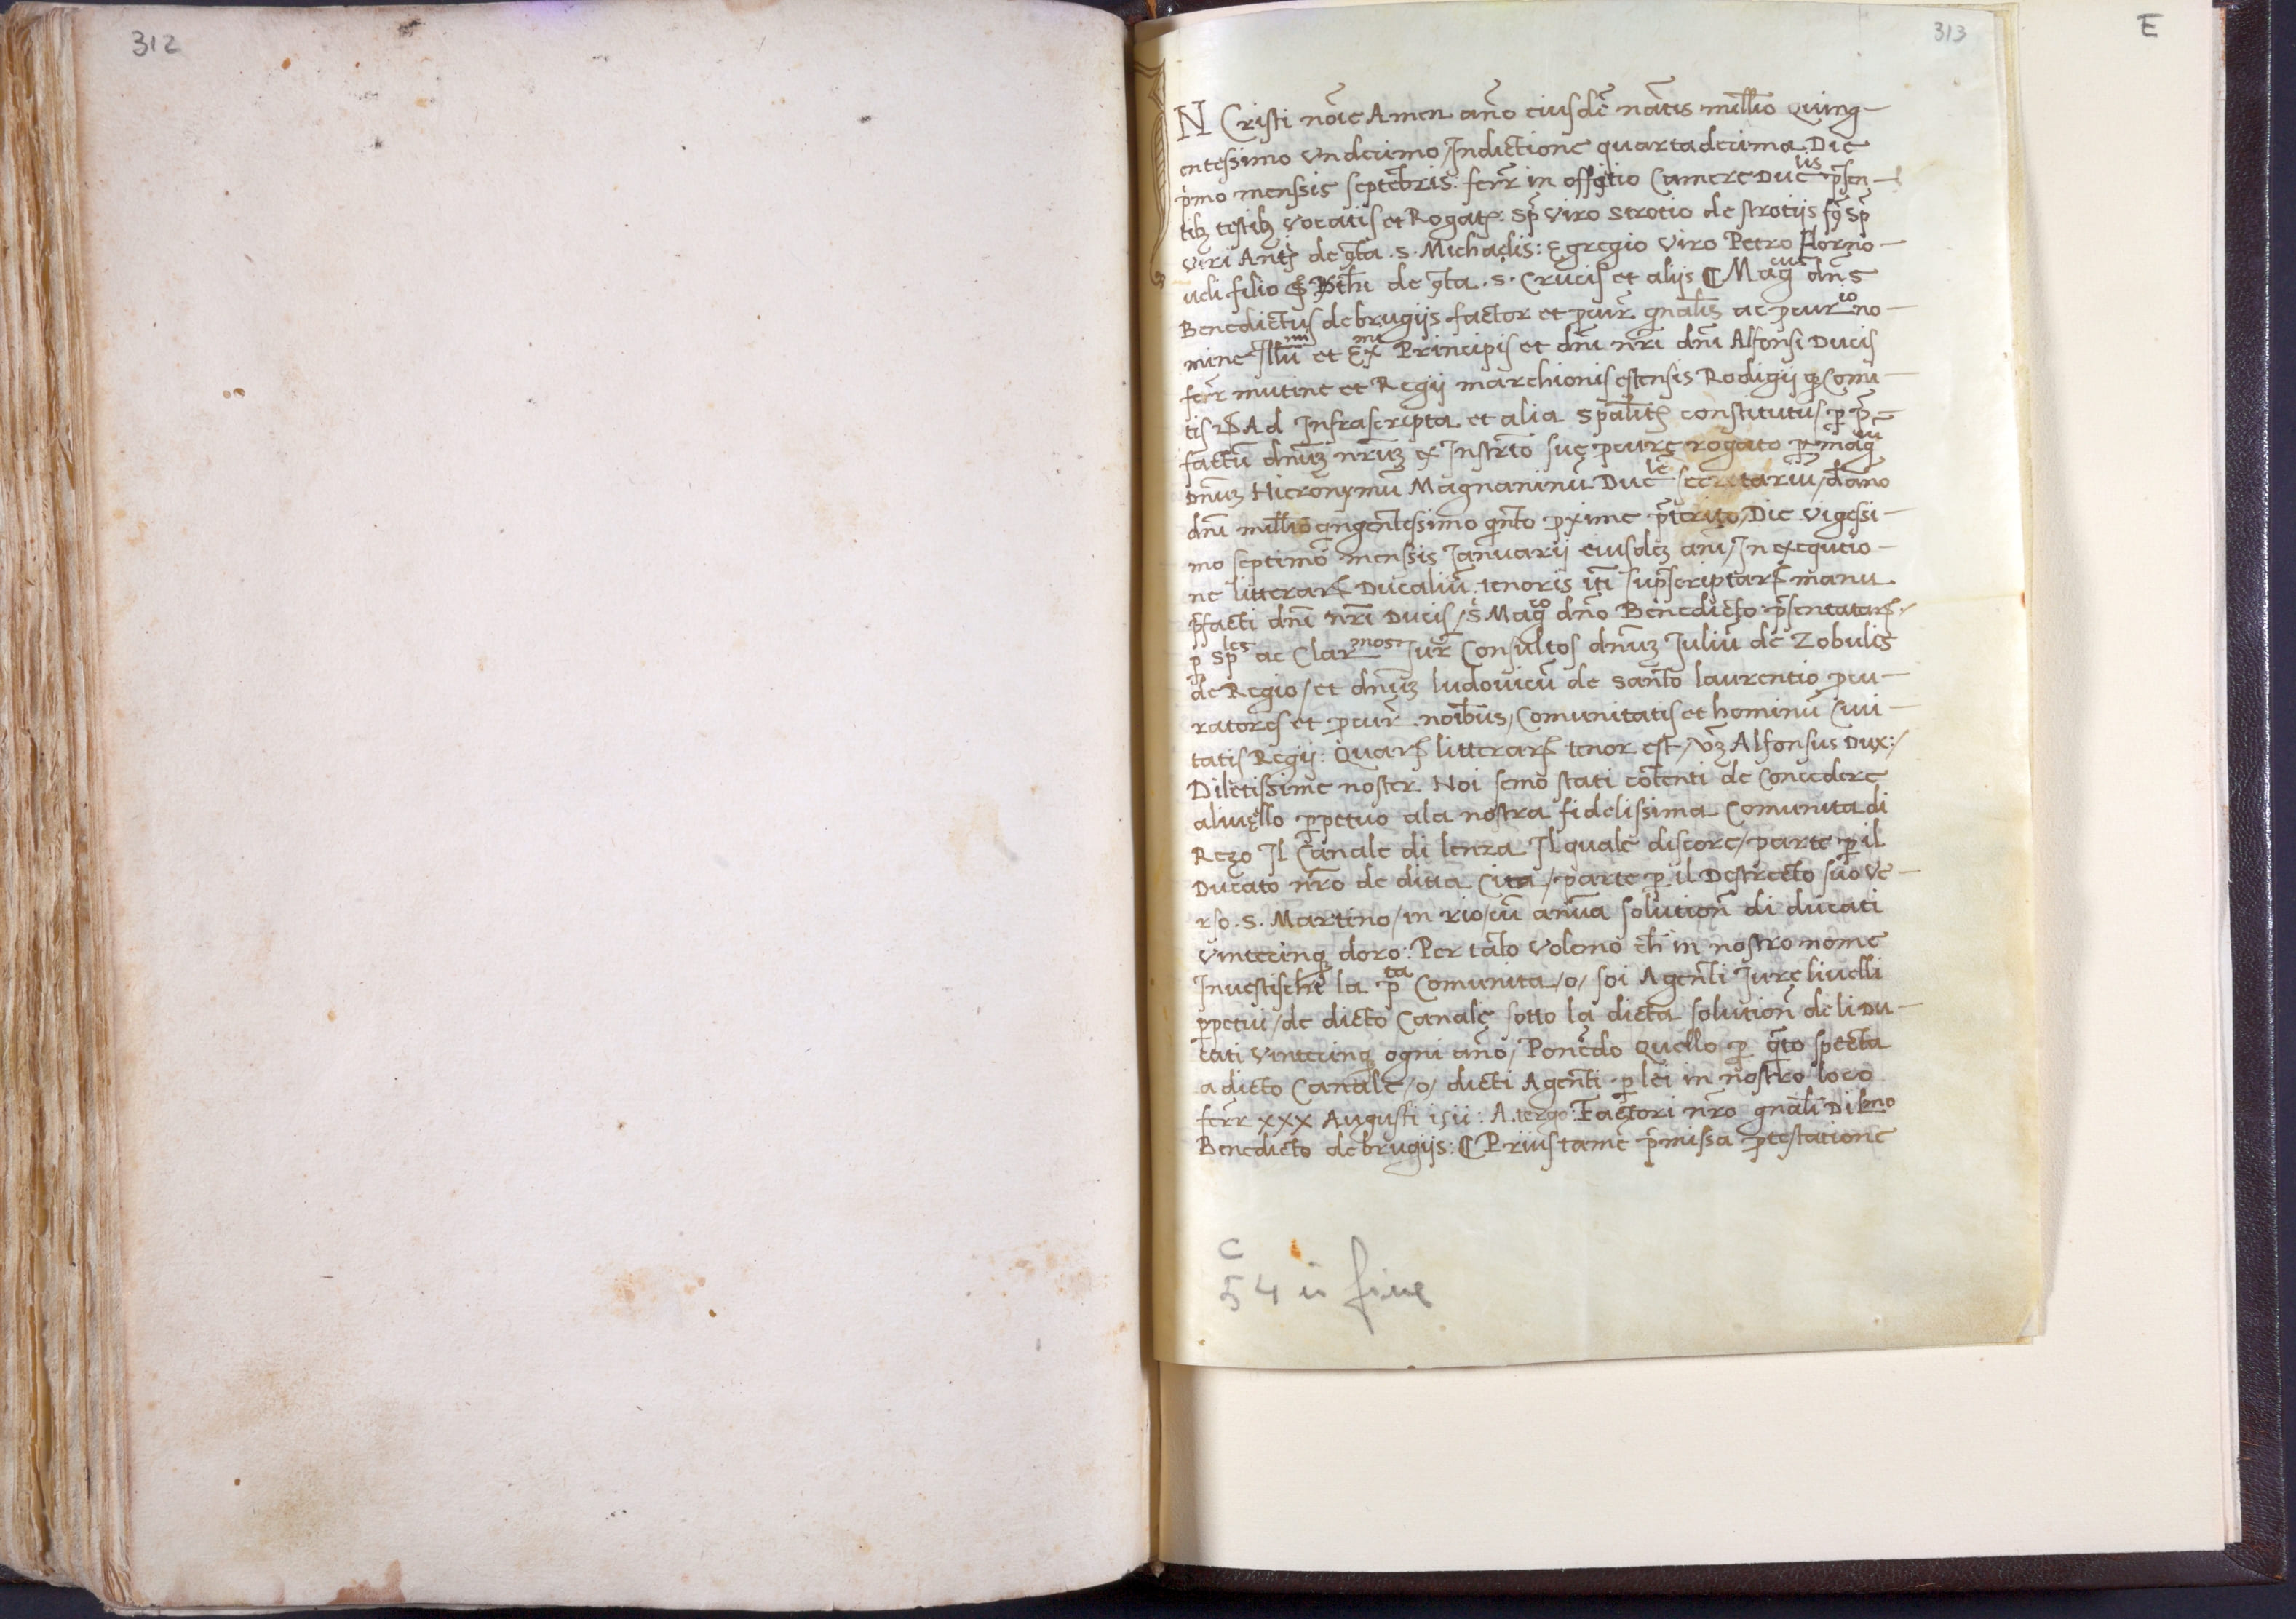 312
313
E
IN Cristi nōīe Amen año eiusdē nātis mill̄io Quing-
entessimo Undecimo / Indictione quartadecima. Die
p̄mo menssis septēbris: ferr̄ in offitio Camere Ducˡⁱˢ p̄sen-
tibʒ testibʒ vocatis et Rogatꝫ: Sp̄ Viro Strotio de strotijs fq̄ Sp̄
Viri Antꝫ de 9̄ta .S. Michaelis: Egregio Viro Petro Forno-
ueli filio de 9̄ta .S. Crucis et alijs ¶ Mag^cus dn̄s
Benedictus de brugijs factor et pcur̄ gnalis ac pcur^io no-
mine Illū^mi et Ex^mi Principis et dn̄i nr̄i dn̄i Alfonsi Ducis
ferr̄ mutine et Regij marchionis estensis Rodigij qʒ Comi-
tis Ad Infrascripta et alia Spāliter constitutus p p̄-
factū dn̄uʒ nr̄uʒ ex Instr̄to suę pcurę rogato p mag^cū
Dn̄uʒ Hieronymū Magnaninū Duc^lē secretariū / d año
dn̄i mill̄io qngentessimo qnto pxime p̄terito / Die Vigessi-
mo septimo menssis Januarij eiusdeʒ ani / In exequtio-
ne litterarꝝ Ducaliū tenoris īt̄i sup̄scriptarꝝ manu
p̄facti dn̄i nr̄i Ducis / s̄ Mag^co dn̄o Benedicto p̄sentatarꝝ /
p Sp^les ac Clar^mos Jur̄ Consultos dn̄uʒ Juliū de Zobulis
de Regio / et dn̄uʒ ludouicū de Santo laurentio pcu-
ratores et pcur̄ noībus / Comunitatis et hominū Ciui-
tatis Regij: Quarꝝ litterarꝝ tenor est / vʒ Alfonsus Dux: /
Diletissime noster. Noi semo stati cōtenti de Concedere
aliuello ppetuo ala nostra fidelissima Comunita di
Rezo Il Canale di lenza Il quale discore / parte p il
Ducato nr̄o de ditta Cita / parte p il Destrecto suo Ve-
rso .S. Martino / in rio / cū anua solution̄ di ducati
Vintecinqʒ doro: Per tāto Volemo ch̄ in nostro nome
Inuestische la p̄^ta Comunita / o / soi Agenti Jure liuelli
ppetui / de dicto Canale sotto la dicta solution̄ de li Du-
cati Vintecinqʒ ogni año / Ponēdo Quello p qto specta
a dicto Canale / o / dicti Agenti p lei in nostro loco
ferr̄ xxx Augusti 1511: A tergo: Factori nr̄o gnali Dil^mo
Benedicto de brugijs: ¶ Prius tamē p̄missa ptestatione
C
54 in fine